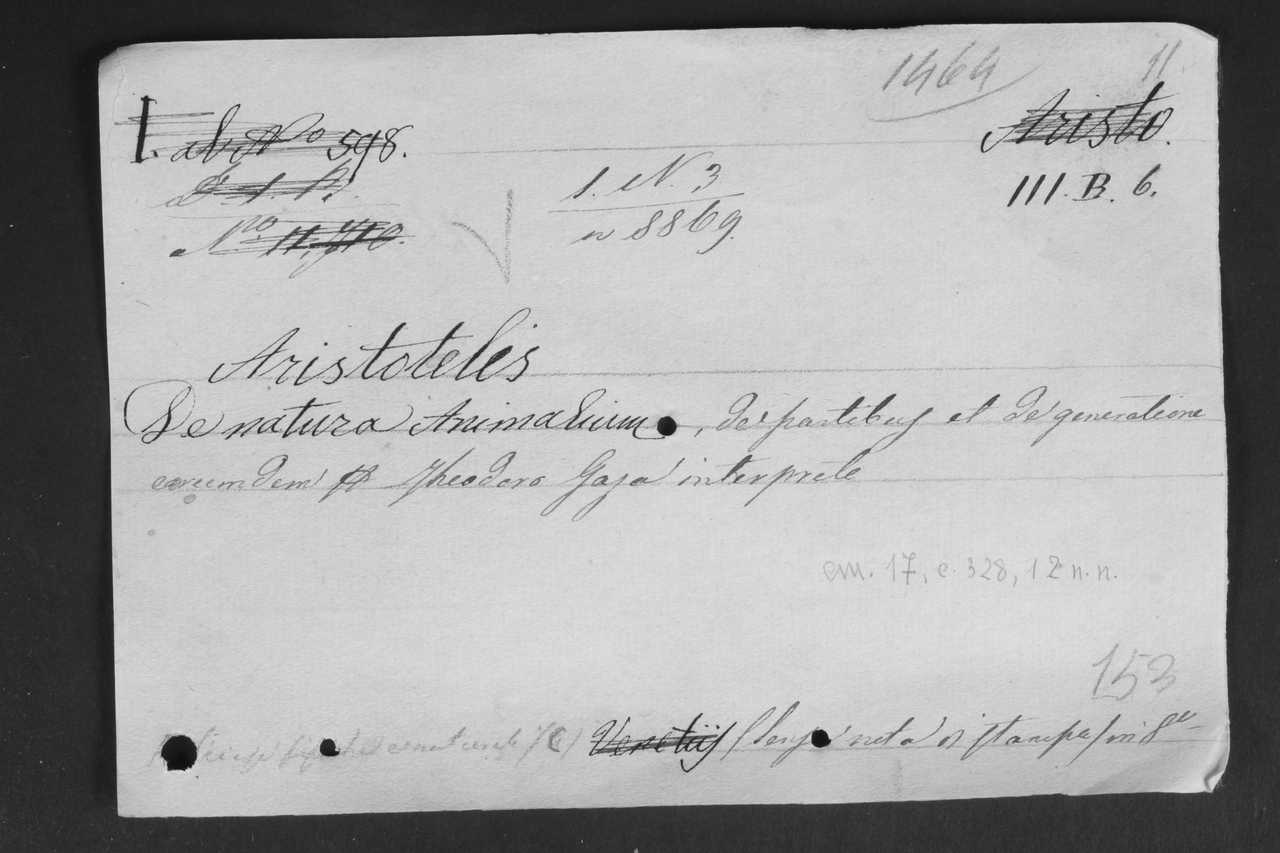 1464 11.
I. ab No 598. Aristo.
D. 1. B.
1. N. 3
III. B. 6.
No 11,710.
n 8869.
Aristotelis
De natura Animalium, de partibus et de generatione
eorumdem Theodoro Gaza interprete
cm. 17, c. 328, 12 n.n.
153
Venetiis (senza nota di stampa) in 8º